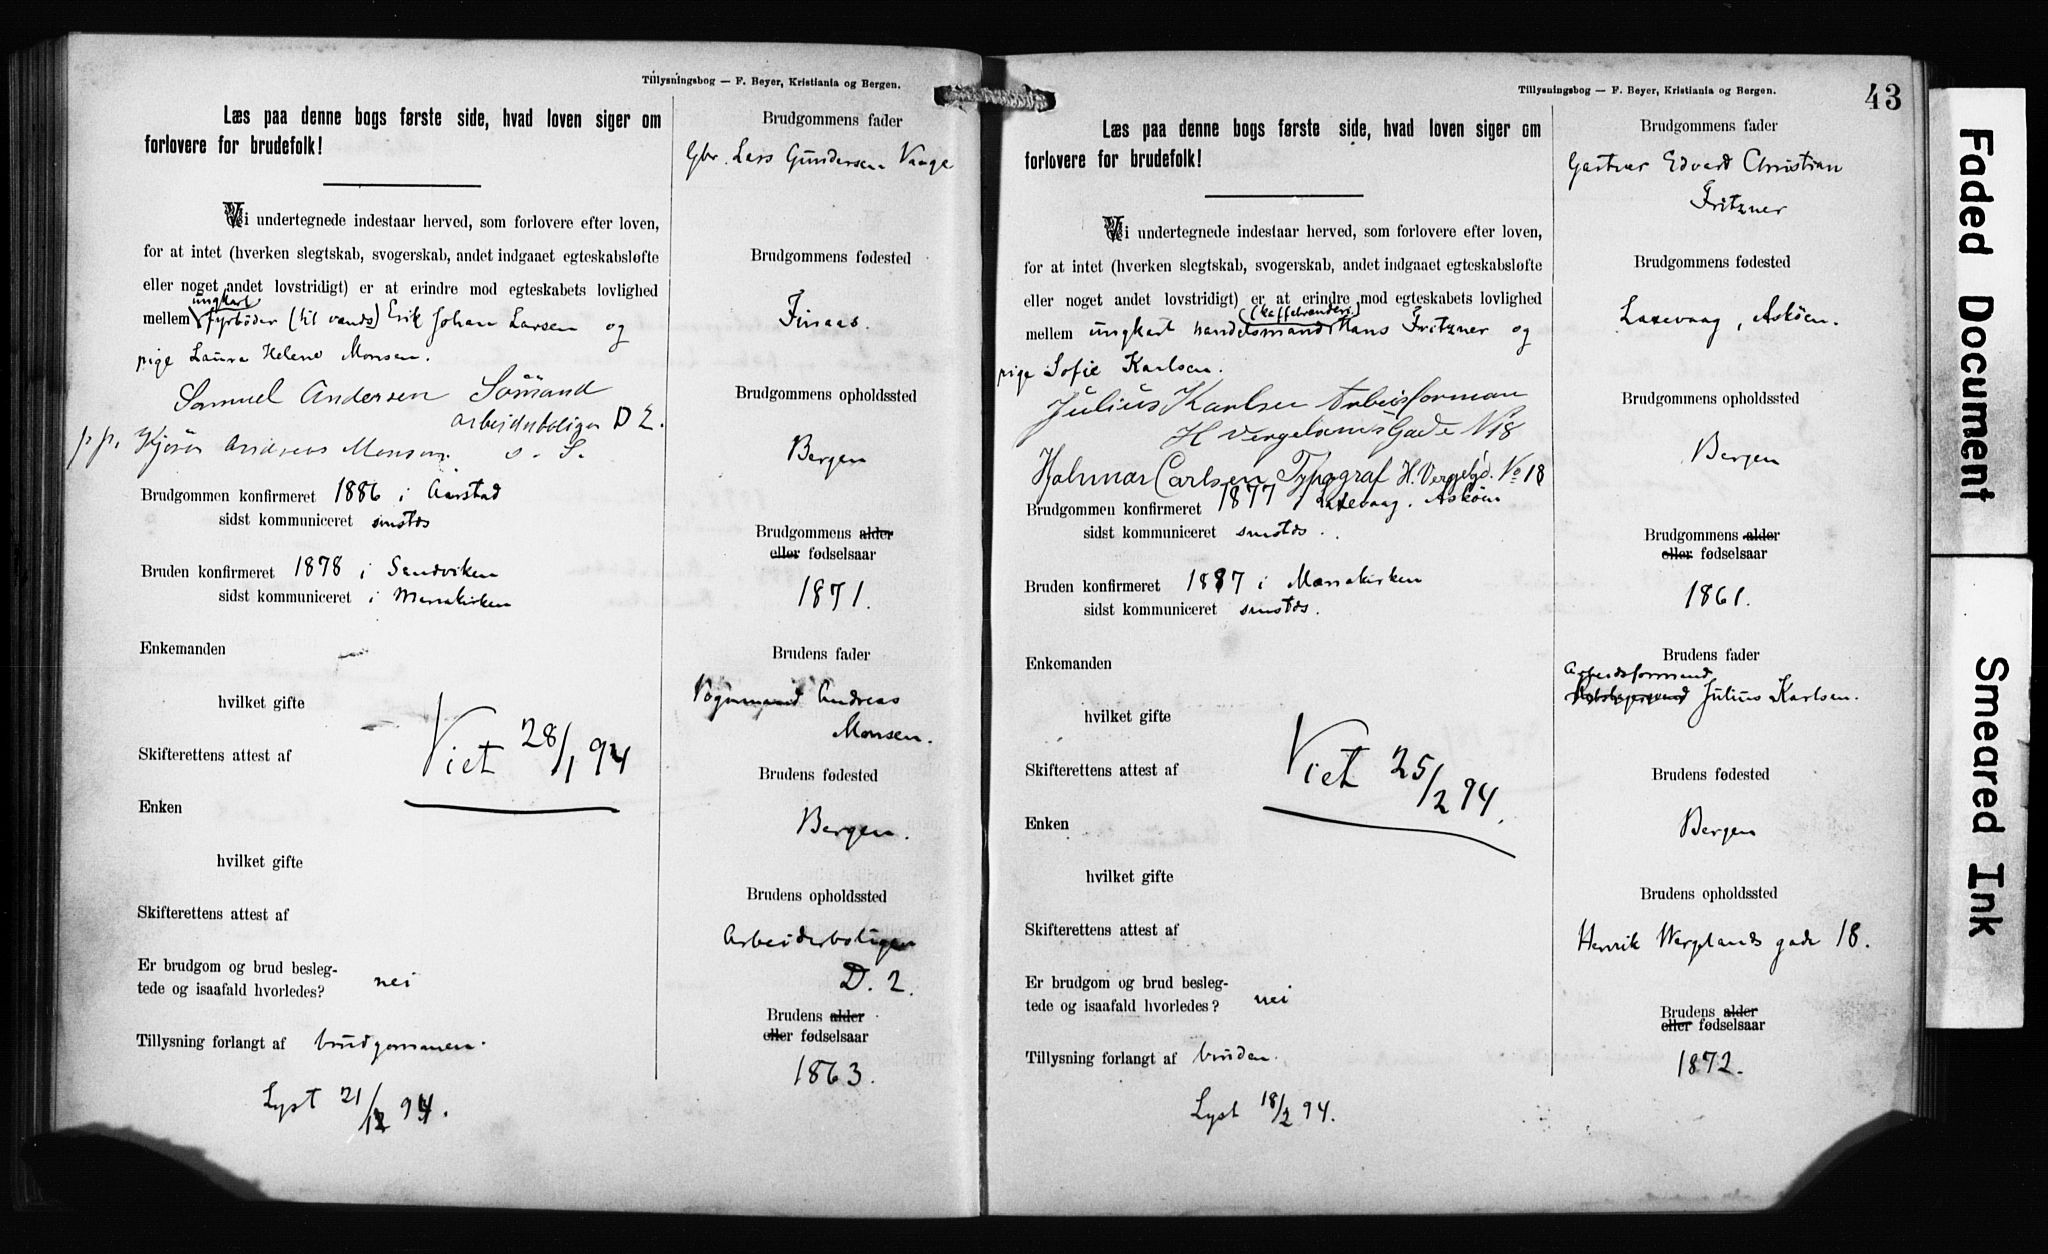 Tillysningsbog — F. Beyer, Kristiania og Bergen.
Læs paa denne bogs første side, hvad loven siger om
forlovere for brudefolk!
Vi undertegnede indestaar herved, som forlovere efter loven,
for at intet (hverken slegtskab, svogerskab, andet indgaaet egteskabsløfte
eller noget andet lovstridigt) er at erindre mod egteskabets lovlighed
ungkarl
mellem fyrbøder (til vands) Erik Johan Larsen og
pige Laura Helene Monsen.
Samuel Andersen Sömand
arbeiderboliger D 2.
p.p. Andreas Monsen s. S.
Brudgommen konfirmeret 1886 i Aarstad
sidst kommuniceret smstds
Bruden konfirmeret 1878 i Sandviken
sidst kommuniceret i Mariakirken
Enkemanden
hvilket gifte
Skifterettens attest af
Viet 28/1 94
Enken
hvilket gifte
Skifterettens attest af
Er brudgom og brud besleg-
tede og isaafald hvorledes? nei
Tillysning forlangt af brudgommen.
Lyst 21/1 94.
Brudgommens fader
Gbr. Lars Gundersen Vaage
Brudgommens fødested
Finaas.
Brudgommens opholdssted
Bergen
Brudgommens alder
eller fødselsaar
1871.
Brudens fader
Vognmand Andreas
Monsen.
Brudens fødested
Bergen.
Brudens opholdssted
Arbeiderboligen
D. 2.
Brudens alder
eller fødselsaar
1863.
Tillysningsbog — F. Beyer, Kristiania og Bergen.
43
Læs paa denne bogs første side, hvad loven siger om
forlovere for brudefolk!
Vi undertegnede indestaar herved, som forlovere efter loven,
for at intet (hverken slegtskab, svogerskab, andet indgaaet egteskabsløfte
eller noget andet lovstridigt) er at erindre mod egteskabets lovlighed
(kaffebrænderi)
mellem ungkarl handelsmand Hans Fritzner og
pige Sofie Karlsen.
Julius Karlsen Arbeisforman
H Vergelands Gade N 18
Hjalmar Carlsen Typograf H. Vergelgd. No 18
Brudgommen konfirmeret 1877 i Laxevaag, Askøen
sidst kommuniceret smstds.
Bruden konfirmeret 1887 i Mariakirken
sidst kommuniceret smstds.
Enkemanden
hvilket gifte
Skifterettens attest af
Viet 25/2 94.
Enken
hvilket gifte
Skifterettens attest af
Er brudgom og brud besleg-
tede og isaafald hvorledes? nei
Tillysning forlangt af bruden.
Lyst 18/2 94.
Brudgommens fader
Gartner Edvard Christian
Fritzner
Brudgommens fødested
Laxevaag, Askøen.
Brudgommens opholdssted
Bergen
Brudgommens alder
eller fødselsaar
1861.
Brudens fader
Arbeidsformand
Julius Karlsen.
Brudens fødested
Bergen
Brudens opholdssted
Henrik Wergelands gade 18.
Brudens alder
eller fødselsaar
1872.
Faded Document
Smeared Ink